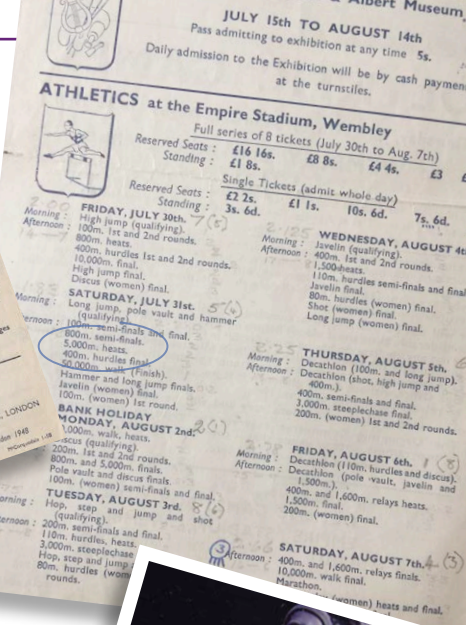 Albert Museum,
JULY 15th TO AUGUST 14th
Pass admitting to exhibition at any time 5s.
Daily admission to the Exhibition will be by cash paymen
at the turnstiles.
ATHLETICS at the Empire Stadium, Wembley
Full series of 8 tickets (July 30th to Aug. 7th)
Reserved Seats : £16 16s. £8 8s. £4 4s. £3
Standing : £1 8s.
Single Tickets (admit whole day)
Reserved Seats : £2 2s. £1 1s. 10s. 6d. 7s. 6d.
Standing : 3s. 6d.
FRIDAY, JULY 30th.
Morning : High jump (qualifying).
Afternoon : 100m. 1st and 2nd rounds.
800m. heats.
400m. hurdles 1st and 2nd rounds.
10,000m. final.
High jump final.
Discus (women) final.
SATURDAY, JULY 31st.
Morning : Long jump, pole vault and hammer
(qualifying).
Afternoon : 100m. semi-finals and final.
800m. semi-finals.
5,000m. heats.
400m. hurdles final.
50,000m. walk (finish).
Hammer and long jump finals.
Javelin (women) final.
100m. (women) 1st round.
BANK HOLIDAY
MONDAY, AUGUST 2nd.
walk, heats.
Discus (qualifying).
200m. 1st and 2nd rounds.
800m. and 5,000m. finals.
Pole vault and discus finals.
100m. (women) semi-finals and final.
TUESDAY, AUGUST 3rd.
orning : Hop, step and jump and shot
(qualifying).
ternoon : 200m. semi-finals and final.
110m. hurdles, heats.
3,000m. steeplechase
Hop, step and jump
80m. hurdles (wom
rounds.
WEDNESDAY, AUGUST 4t
Morning : Javelin (qualifying).
Afternoon : 400m. 1st and 2nd rounds.
1,500m. heats.
110m. hurdles final.
Javelin final.
80m. hurdles (women) final.
Shot (women) final.
Long jump (women) final.
THURSDAY, AUGUST 5th.
Morning : Decathlon (100m. and long jump).
Afternoon : Decathlon (shot, high jump and
400m.).
400m. semi-finals and final.
3,000m. steeplechase final.
200m. (women) 1st and 2nd rounds.
FRIDAY, AUGUST 6th.
Morning : Decathlon (110m. hurdles and discus).
Afternoon : Decathlon (pole vault, javelin and
1,500m.).
400m. and 1,600m. relays heats.
1,500m. final.
200m. (women) final.
SATURDAY, AUGUST 7th.
3
Afternoon : 400m. and 1,600m. relays finals.
10,000m. walk final.
Marathon.
(women) heats and final.
ges
, LONDON
don 1948